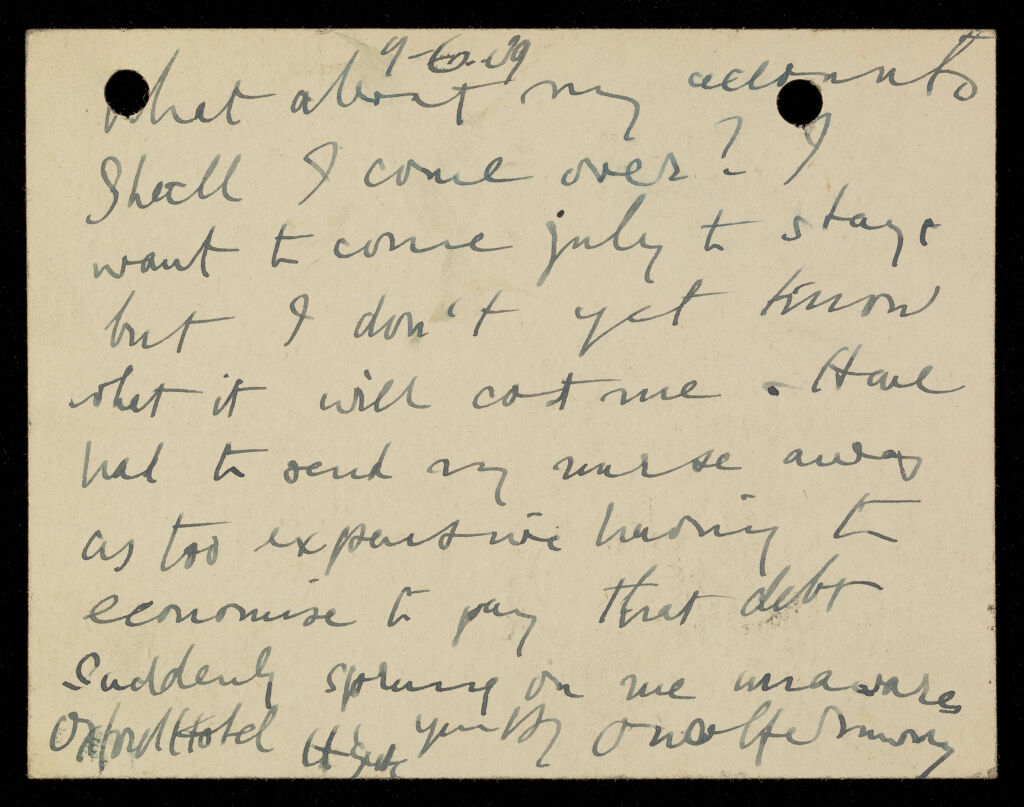 9-6-39
What about my accounts
Shall I come over? I
want to come july to stay.
but I don't yet know
what it will cost me. Have
had to send my nurse away
as too expensive having to
economise to pay that debt
Suddenly sprung on me unawares
Oxford Hotel